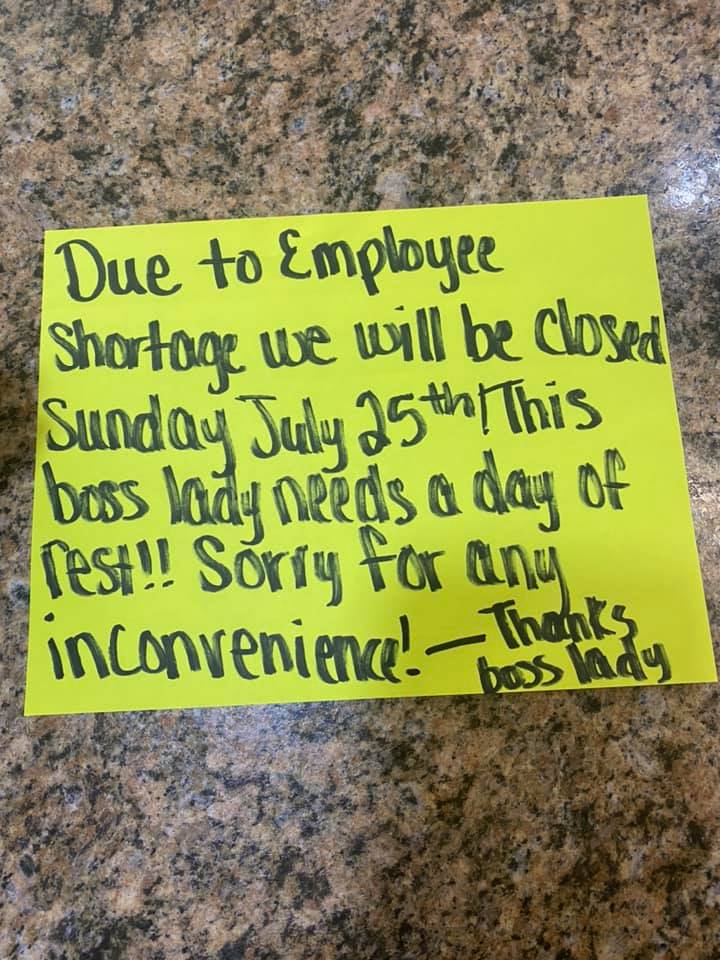 Due to Employee
shortage we will be closed
Sunday July 25th! This
boss lady needs a day of
rest!! Sorry for any
inconvenience! — Thanks
boss lady